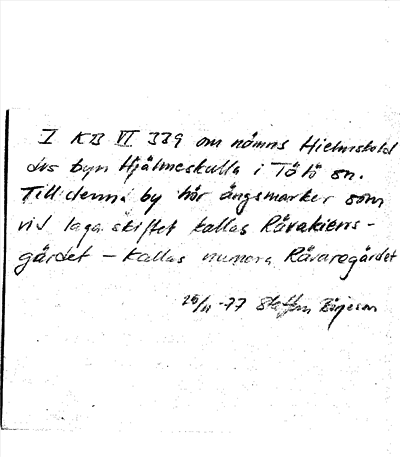 I KB VI 339 omnämns Hielmskuld
dvs byn Hjälmeskulla i Tölö sn.
Till denna by hör ängsmarker som
vid laga skiftet kallas Rävakiens-
gärdet - kallas numora Rävaragärdet
26/11 -77 Staffan Börjeson